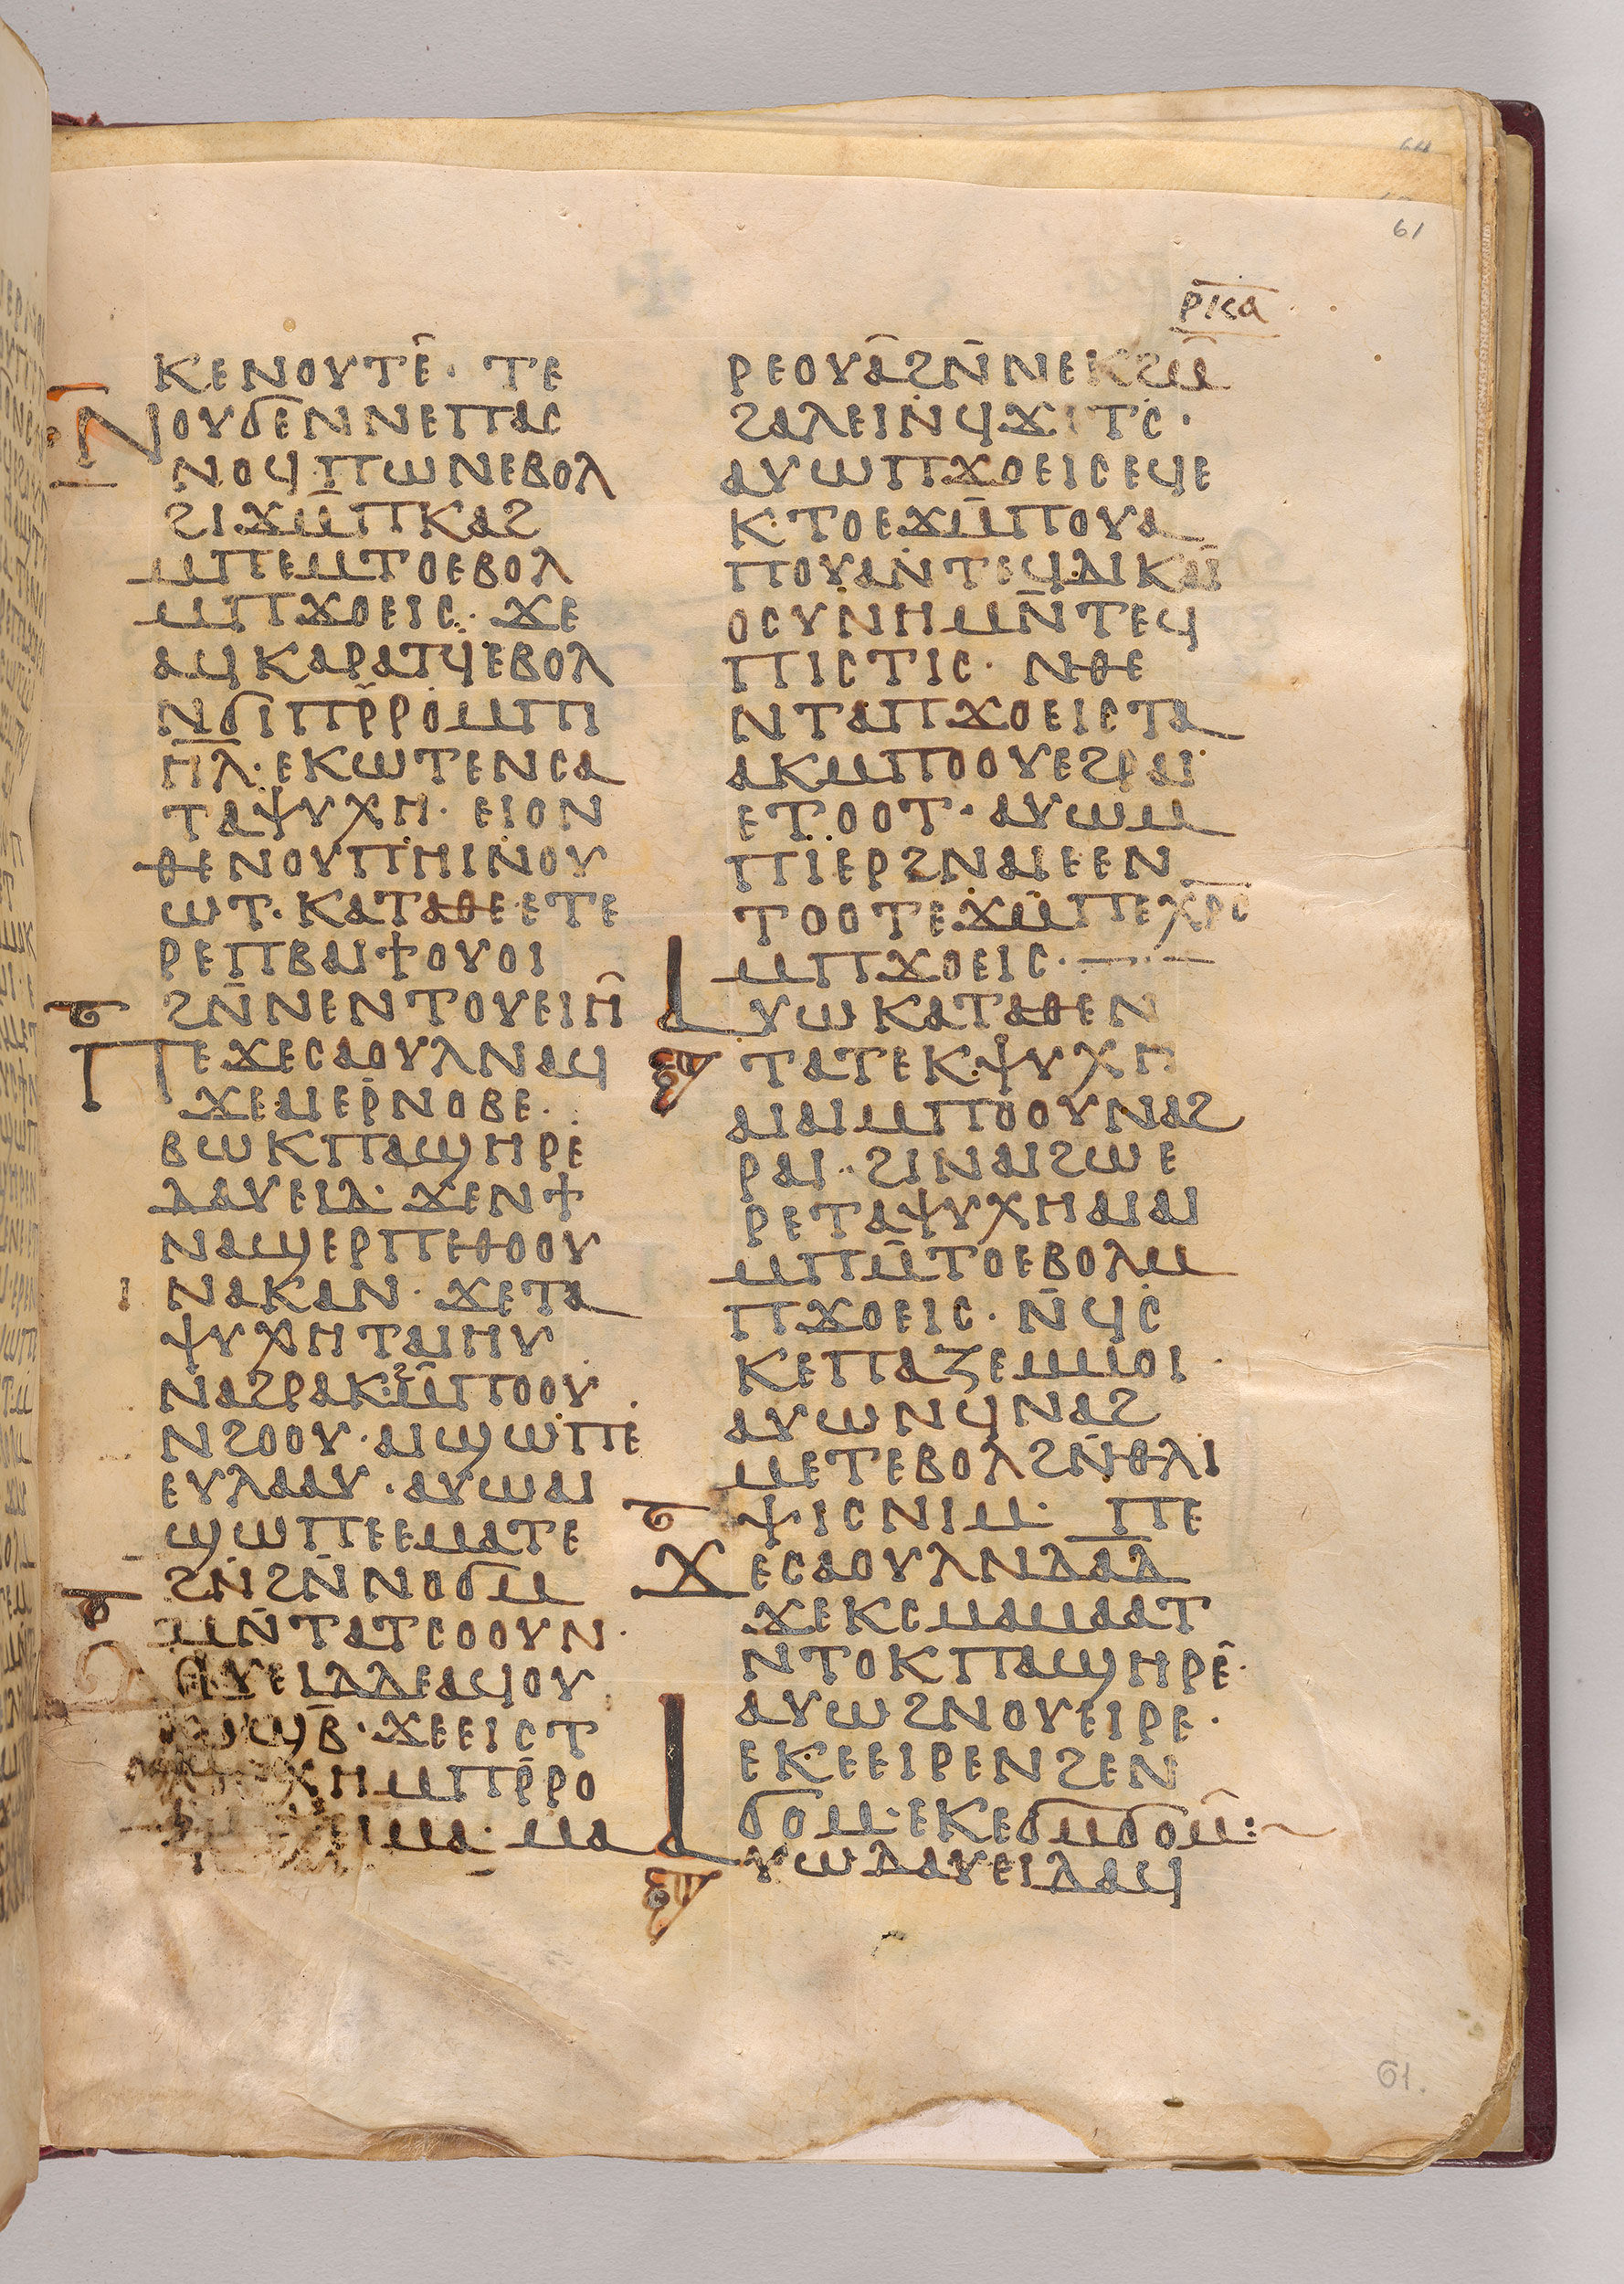 61
ⲣⲕⲁ
ⲕⲉⲛⲟⲩⲧⲉ̂· ⲧⲉ
ⲛⲟⲩϭⲉⲛⲛⲉⲡⲁⲥ
ⲛⲟϥⲡⲱⲛⲉⲃⲟⲗ
ϩⲓϫⲙ̄ⲡⲕⲁϩ
ⲙⲡⲉⲙⲧⲟⲉⲃⲟⲗ
ⲙⲡϫⲟⲉⲓⲥ· ϫⲉ
ⲁϥⲕⲁⲣⲁⲧϥⲉⲃⲟⲗ
ⲛϭⲓⲡⲣ̄ⲣⲟⲙⲡⲓ
ⲏ̄ⲗ̄· ⲉⲕⲱⲧⲉⲛⲥⲁ
ⲧⲁⲯⲩⲭⲏ· ⲉⲓⲟⲛ
ⲑⲉⲛⲟⲩⲡⲏⲓⲛⲟⲩ
ⲱⲧ· ⲕⲁⲧⲁⲑⲉⲉⲧⲉ
ⲣⲉⲡⲃⲁⲓϯⲟⲩⲟⲓ
ϩⲛ̄ⲛⲉⲛⲧⲟⲩⲉⲓⲏ̂
ⲡⲉϫⲉⲥⲁⲟⲩⲗⲛⲁϥ
ϫⲉⲁⲓⲉⲣⲛⲟⲃⲉ·
ⲃⲱⲕⲡⲁϣⲏⲣⲉ
ⲇⲁⲩⲉⲓⲇ· ϫⲉⲛϯ
ⲛⲁϣⲉⲣⲡⲉⲑⲟⲟⲩ
ⲛⲁⲕⲁⲛ· ϫⲉⲧⲁ
ⲯⲩⲭⲏⲧⲁⲓⲏⲩ
ⲛⲁϩⲣⲁⲕϩⲙ̄ⲡⲟⲟⲩ
ⲛϩⲟⲟⲩ· ⲁⲓϣⲱⲡⲉ
ⲉⲩⲗⲁⲁⲩ· ⲁⲩⲱⲁⲓ
ϣⲱⲡⲉⲉⲙⲁⲧⲉ
ϩⲛϩⲛ̄ⲛⲟϭⲙ
ⲙⲛ̄ⲧⲁⲧⲥⲟⲟⲩⲛ·
ⲇⲁⲩⲉⲓⲇⲇⲉⲁϥⲟⲩ
ⲱϣⲃ̄· ϫⲉⲉⲓⲥⲧ
ⲭⲏⲙⲡⲣ̄ⲣⲟ
ⲙⲁ· ⲙⲁ
ⲣⲉⲟⲩⲁ̂ϩⲛ̄ⲛⲉⲕϩⲙ̂
ϩⲁⲗⲉⲓⲛϥϫⲓⲧⲥ·
ⲁⲩⲱⲡϫⲟⲉⲓⲥⲉϥⲉ
ⲕⲧⲟⲉϫⲙ̄ⲡⲟⲩⲁ
ⲡⲟⲩⲁⲛⲧⲉϥⲇⲓⲕⲁⲓ
ⲟⲥⲩⲛⲏⲙⲛ̄ⲧⲉϥ
ⲡⲓⲥⲧⲓⲥ· ⲛⲑⲉ
ⲛⲧⲁⲡϫⲟⲉⲓⲥⲧⲁ
ⲁⲕⲙⲡⲟⲟⲩⲉϩⲣⲁⲓ
ⲉⲧⲟⲟⲧ· ⲁⲩⲱⲙ
ⲡⲓ̈ⲉⲣϩⲛⲁⲓⲉⲉⲛ
ⲧⲟⲟⲧⲉϫⲙ̄ⲡⲉⲭⲣ̄ⲥ̄
ⲙⲡϫⲟⲉⲓⲥ·
ⲁⲩⲱⲕⲁⲧⲁⲑⲉⲛ
ⲧⲁⲧⲉⲕⲯⲩⲭⲏ
ⲁⲓⲁⲓⲙⲡⲟⲟⲩⲛⲁϩ
ⲣⲁⲓ· ϩⲓⲛⲁⲓϩⲱⲉ
ⲣⲉⲧⲁⲯⲩⲭⲏⲁⲓⲁⲓ
ⲙⲡⲙ̄ⲧⲟⲉⲃⲟⲗⲙ
ⲡϫⲟⲉⲓⲥ· ⲛ̄ϥⲥ
ⲕⲉⲡⲁⲍⲉⲙⲙⲟⲓ
ⲁⲩⲱⲛϥⲛⲁϩ
ⲙⲉⲧⲉⲃⲟⲗϩⲛ̄ⲑⲗⲓ
ⲯⲓⲥⲛⲓⲙ· ⲡⲉ
ϫⲉⲥⲁⲟⲩⲗⲛⲇⲁ̄ⲇ̄
ϫⲉⲕⲥⲙⲁⲙⲁⲁⲧ
ⲛⲧⲟⲕⲡⲁϣⲏⲣⲉ̂·
ⲁⲩⲱϩⲛⲟⲩⲉⲓⲣⲉ·
ⲉⲕⲉⲉⲓⲣⲉⲛϩⲉⲛ
ϭⲟⲙ· ⲉⲕⲉϭⲙϭⲟⲙ̂:
ⲁⲩⲱⲇⲁⲩⲉⲓⲇⲁϥ
61.